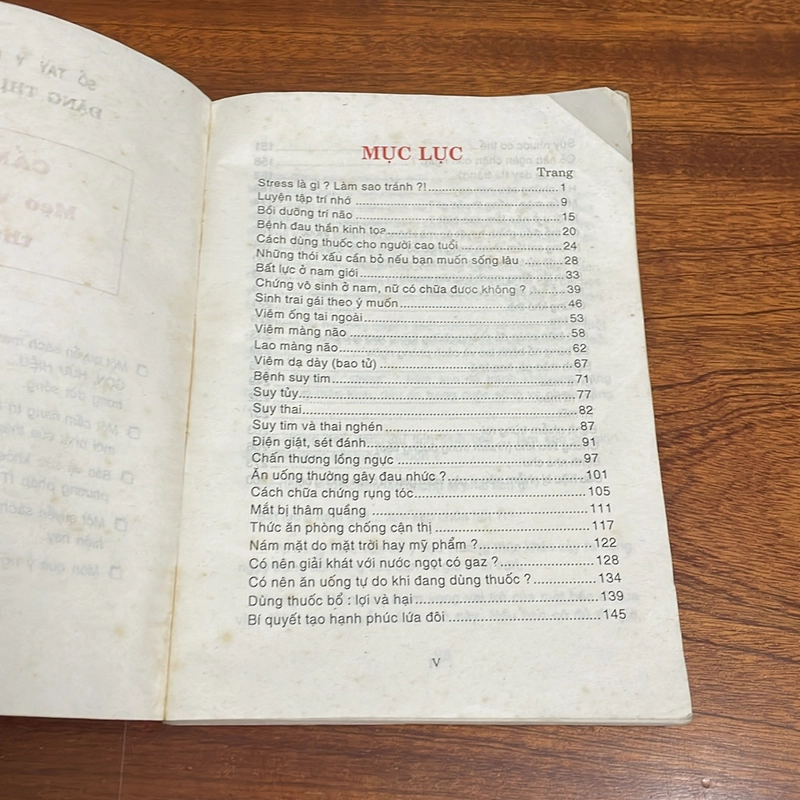 MỤC LỤC
Trang
Stress là gì ? Làm sao tránh ?!................................1
Luyện tập trí nhớ ....................................................9
Bồi dưỡng trí não ..................................................15
Bệnh đau thần kinh tọa..........................................20
Cách dùng thuốc cho người cao tuổi .....................24
Những thói xấu cần bỏ nếu bạn muốn sống lâu .......28
Bất lực ở nam giới.................................................33
Chứng vô sinh ở nam, nữ có chữa được không ? .........39
Sinh trai gái theo ý muốn.......................................46
Viêm ống tai ngoài ................................................53
Viêm màng não .....................................................58
Lao màng não........................................................62
Viêm dạ dày (bao tử) ............................................67
Bệnh suy tim .........................................................71
Suy tủy..................................................................77
Suy thai.................................................................82
Suy tim và thai nghén ...........................................87
Điện giật, sét đánh................................................91
Chấn thương lồng ngực ........................................97
Ăn uống thường gây đau nhức ? .........................101
Cách chữa chứng rụng tóc..................................105
Mắt bị thâm quầng ..............................................111
Thức ăn phòng chống cận thị ..............................117
Nám mặt do mặt trời hay mỹ phẩm ?...................122
Có nên giải khát với nước ngọt có gaz ? .............128
Có nên ăn uống tự do khi đang dùng thuốc ? ......134
Dùng thuốc bổ : lợi và hại...................................139
Bí quyết tạo hạnh phúc lứa đôi ...........................145
V